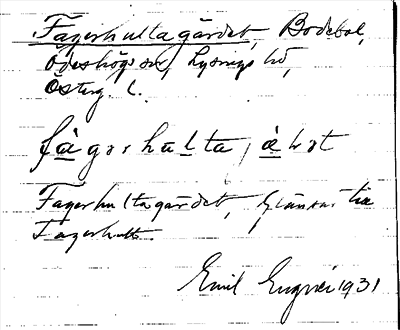 Fagerhultagärdet, Bodebol,
Ödeshögs sn, Lysings hd,
Österg. l.
fàgərhulta, jàḷət
Fagerhultagärdet, Gränsar till
Fagerhult.
Emil Engvér 1931